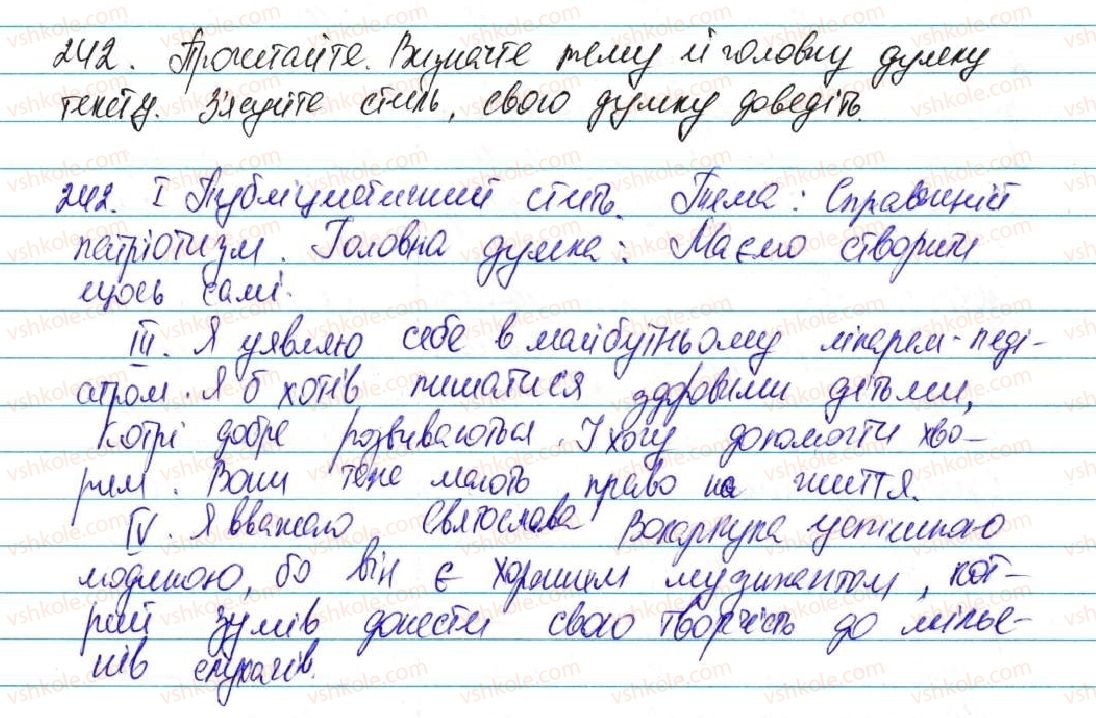 242. Прочитайте. Визначте тему й головну думку
тексту. З'ясуйте стиль, свою думку доведіть.
242. I Публіцистичний стиль. Тема: Справжній
патріотизм. Головна думка: Маємо створити
щось самі.
III. Я уявляю себе в майбутньому лікарем-педі-
атром. Я б хотів пишатися здоровими дітьми,
котрі добре розвиваються. І хочу допомогти хво-
рим. Вони теж мають право на життя.
IV. Я вважаю Святослава Вакарчука успішною
людиною, бо він є хорошим музикантом, кот-
рий зумів донести свою творчість до мільйо-
нів слухачів.